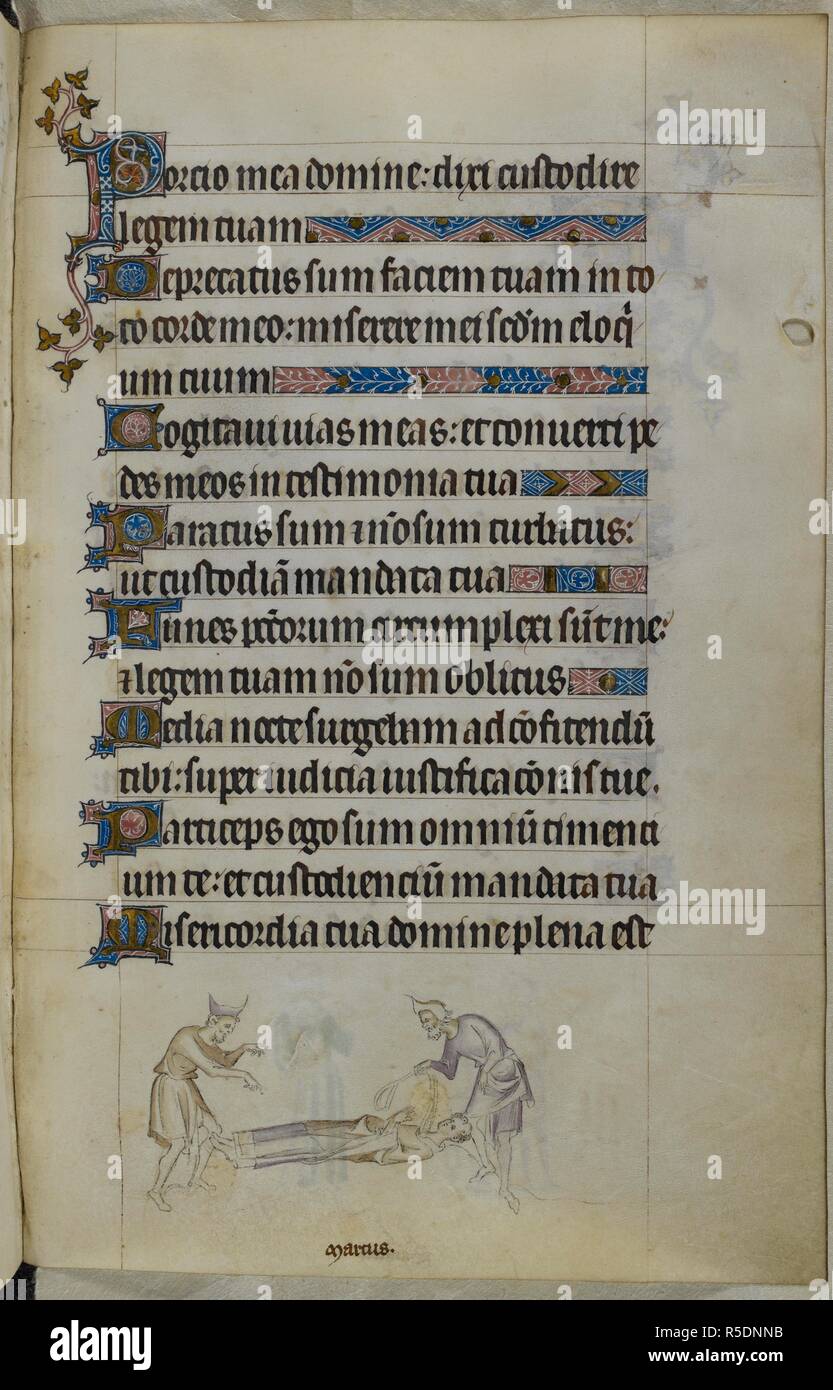 Porcio mea domine: dixi custodire
legem tuam
Deprecatus sum faciem tuam in to
to corde meo: miserere mei scdm eloqi
um tuum
Cogitaui uias meas: et conuerti pe
des meos in testimonia tua
Paratus sum ⁊ nō sum turbatus:
ut custodiā mandata tua
Funes pctorum circumplexi sūt me:
⁊ legem tuam nō sum oblitus
Media nocte surgebam ad cōfitendū
tibi: super iudicia iustificacōnis tue.
Particeps ego sum omniū timenti
um te: et custodienciū mandata tua
Misericordia tua domine plena est
marcus.
alamy
Image ID: R5DNNB
www.alamy.com